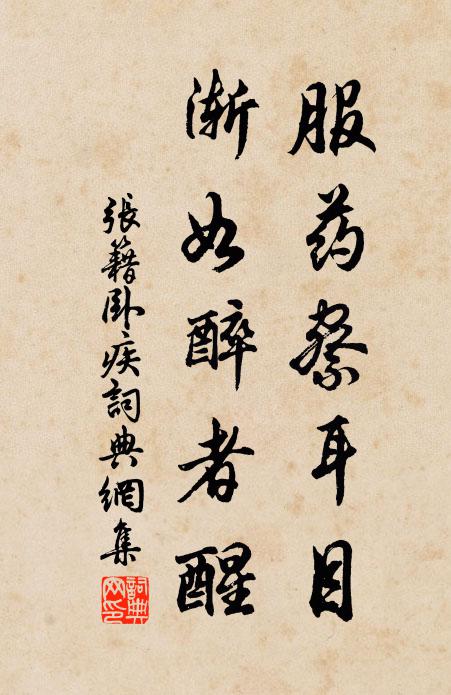 服药察耳目
渐如醉者醒
張籍卧疾詞典網集
詞典网印